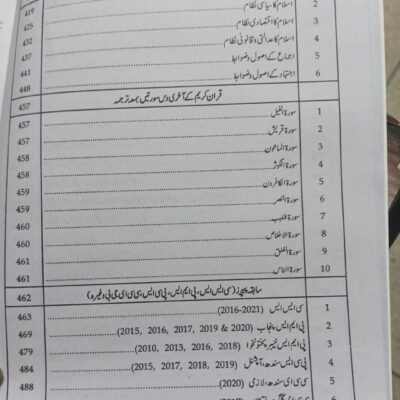 2 اسلام کا سیاسی نظام 419
3 اسلام کا اقتصادی نظام 425
4 اسلام کا عدالتی و قانونی نظام 432
5 اجماع کے اصول و ضوابط 437
6 اجتہاد کے اصول و ضوابط 441
448
قرآن کریم کے آخری دس سورتیں بمعہ ترجمہ 457
1 سورۃ الفیل 457
2 سورۃ قریش 458
3 سورۃ الماعون 458
4 سورۃ الکوثر 458
5 سورۃ الکافرون 459
6 سورۃ النصر 459
7 سورۃ اللہب 460
8 سورۃ الاخلاص 460
9 سورۃ الفلق 461
10 سورۃ الناس 461
سابقہ پیپرز (سی ایس ایس، پی ایم ایس، پی سی ایس، سی سی ای جی بی وغیرہ) 462
1 سی ایس ایس (2021-2016) 463
2 پی ایم ایس پنجاب (2020 & 2019 ,2017 ,2016 ,2015) 469
3 پی ایم ایس خیبر پختونخوا (2018 ,2016 ,2013 ,2010) 479
4 پی سی ایس سندھ، آپشنل (2019 ,2018 ,2017 ,2015) 484
5 سی سی ای سندھ، لازمی (2020) 488